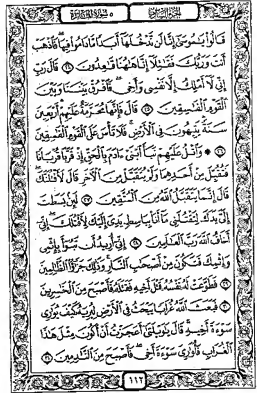 الجزء السادس ٥ سورة المائدة
قَالُوا يَٰمُوسَىٰٓ إِنَّا لَن نَّدْخُلَهَآ أَبَدًا مَّا دَامُوا فِيهَا فَٱذْهَبْ
أَنتَ وَرَبُّكَ فَقَٰتِلَآ إِنَّا هَٰهُنَا قَٰعِدُونَ ٢٤ قَالَ رَبِّ
إِنِّي لَآ أَمْلِكُ إِلَّا نَفْسِي وَأَخِي فَٱفْرُقْ بَيْنَنَا وَبَيْنَ
ٱلْقَوْمِ ٱلْفَٰسِقِينَ ٢٥ قَالَ فَإِنَّهَا مُحَرَّمَةٌ عَلَيْهِمْ أَرْبَعِينَ
سَنَةً يَتِيهُونَ فِي ٱلْأَرْضِ فَلَا تَأْسَ عَلَى ٱلْقَوْمِ ٱلْفَٰسِقِينَ
٢٦ وَٱتْلُ عَلَيْهِمْ نَبَأَ ٱبْنَيْ ءَادَمَ بِٱلْحَقِّ إِذْ قَرَّبَا قُرْبَانًا
فَتُقُبِّلَ مِنْ أَحَدِهِمَا وَلَمْ يُتَقَبَّلْ مِنَ ٱلْأٓخَرِ قَالَ لَأَقْتُلَنَّكَ
قَالَ إِنَّمَا يَتَقَبَّلُ ٱللَّهُ مِنَ ٱلْمُتَّقِينَ ٢٧ لَئِنۢ بَسَطتَ
إِلَيَّ يَدَكَ لِتَقْتُلَنِي مَآ أَنَا۠ بِبَاسِطٍ يَدِيَ إِلَيْكَ لِأَقْتُلَكَ إِنِّيٓ
أَخَافُ ٱللَّهَ رَبَّ ٱلْعَٰلَمِينَ ٢٨ إِنِّيٓ أُرِيدُ أَن تَبُوٓأَ بِإِثْمِي
وَإِثْمِكَ فَتَكُونَ مِنْ أَصْحَٰبِ ٱلنَّارِ وَذَٰلِكَ جَزَٰٓؤُا ٱلظَّٰلِمِينَ
٢٩ فَطَوَّعَتْ لَهُۥ نَفْسُهُۥ قَتْلَ أَخِيهِ فَقَتَلَهُۥ فَأَصْبَحَ مِنَ ٱلْخَٰسِرِينَ
٣٠ فَبَعَثَ ٱللَّهُ غُرَابًا يَبْحَثُ فِي ٱلْأَرْضِ لِيُرِيَهُۥ كَيْفَ يُوَٰرِي
سَوْءَةَ أَخِيهِ قَالَ يَٰوَيْلَتَىٰٓ أَعَجَزْتُ أَنْ أَكُونَ مِثْلَ هَٰذَا
ٱلْغُرَابِ فَأُوَٰرِيَ سَوْءَةَ أَخِي فَأَصْبَحَ مِنَ ٱلنَّٰدِمِينَ ٣١
١١٢